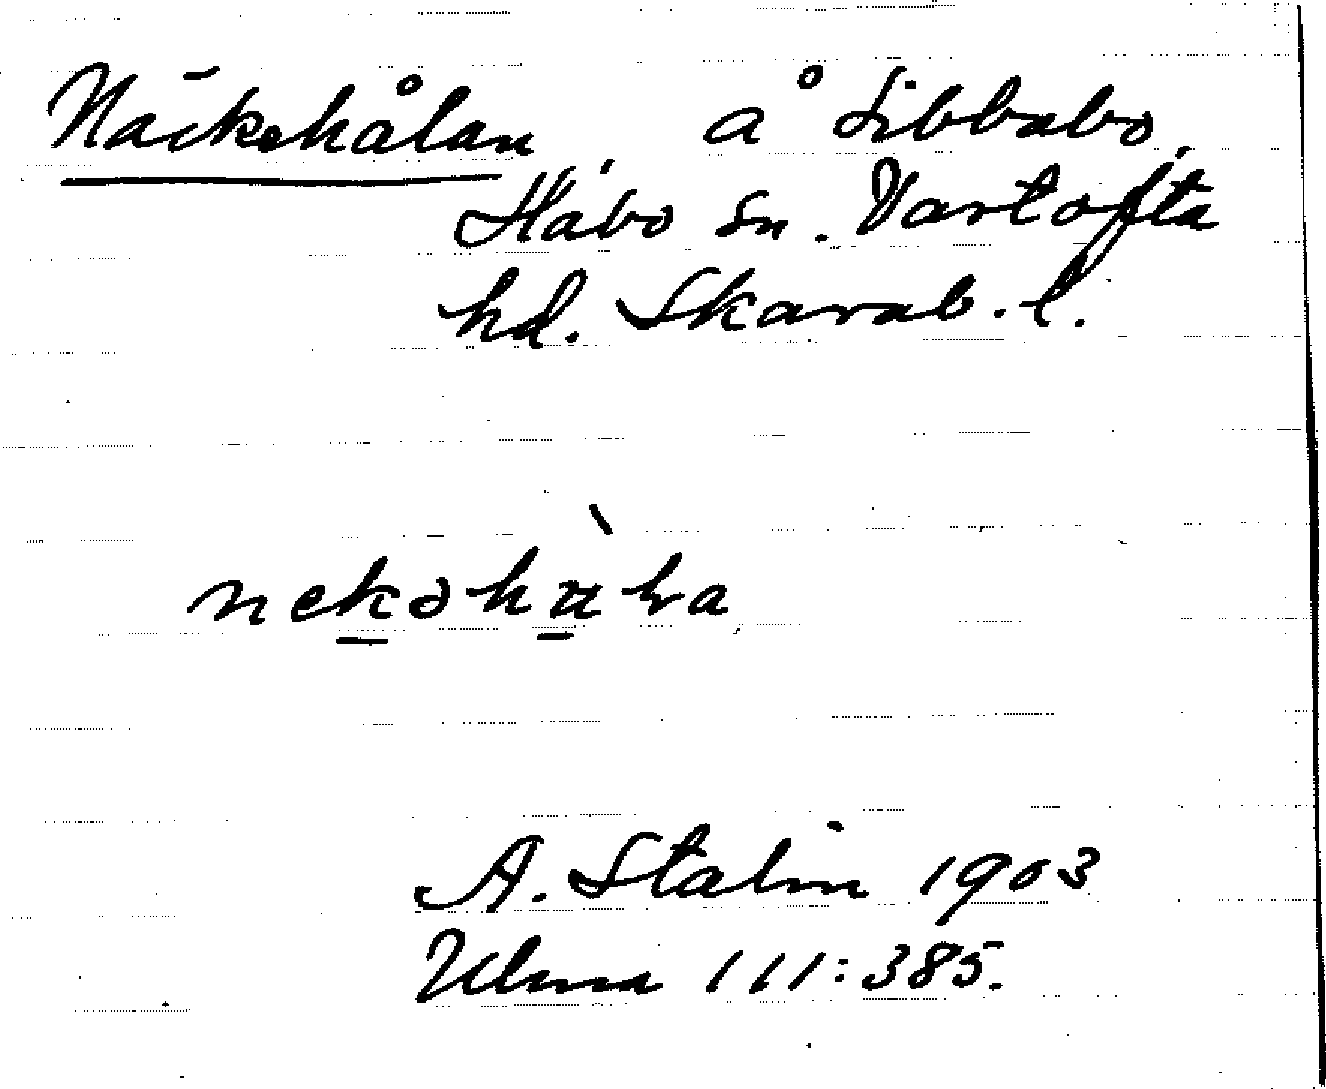 Näckehålan, å Sibbabo,
Håbo sn. Vartofta
hd. Skarab. l.
nekəhàla
A. Stalin 1903
Ulma 111:385.